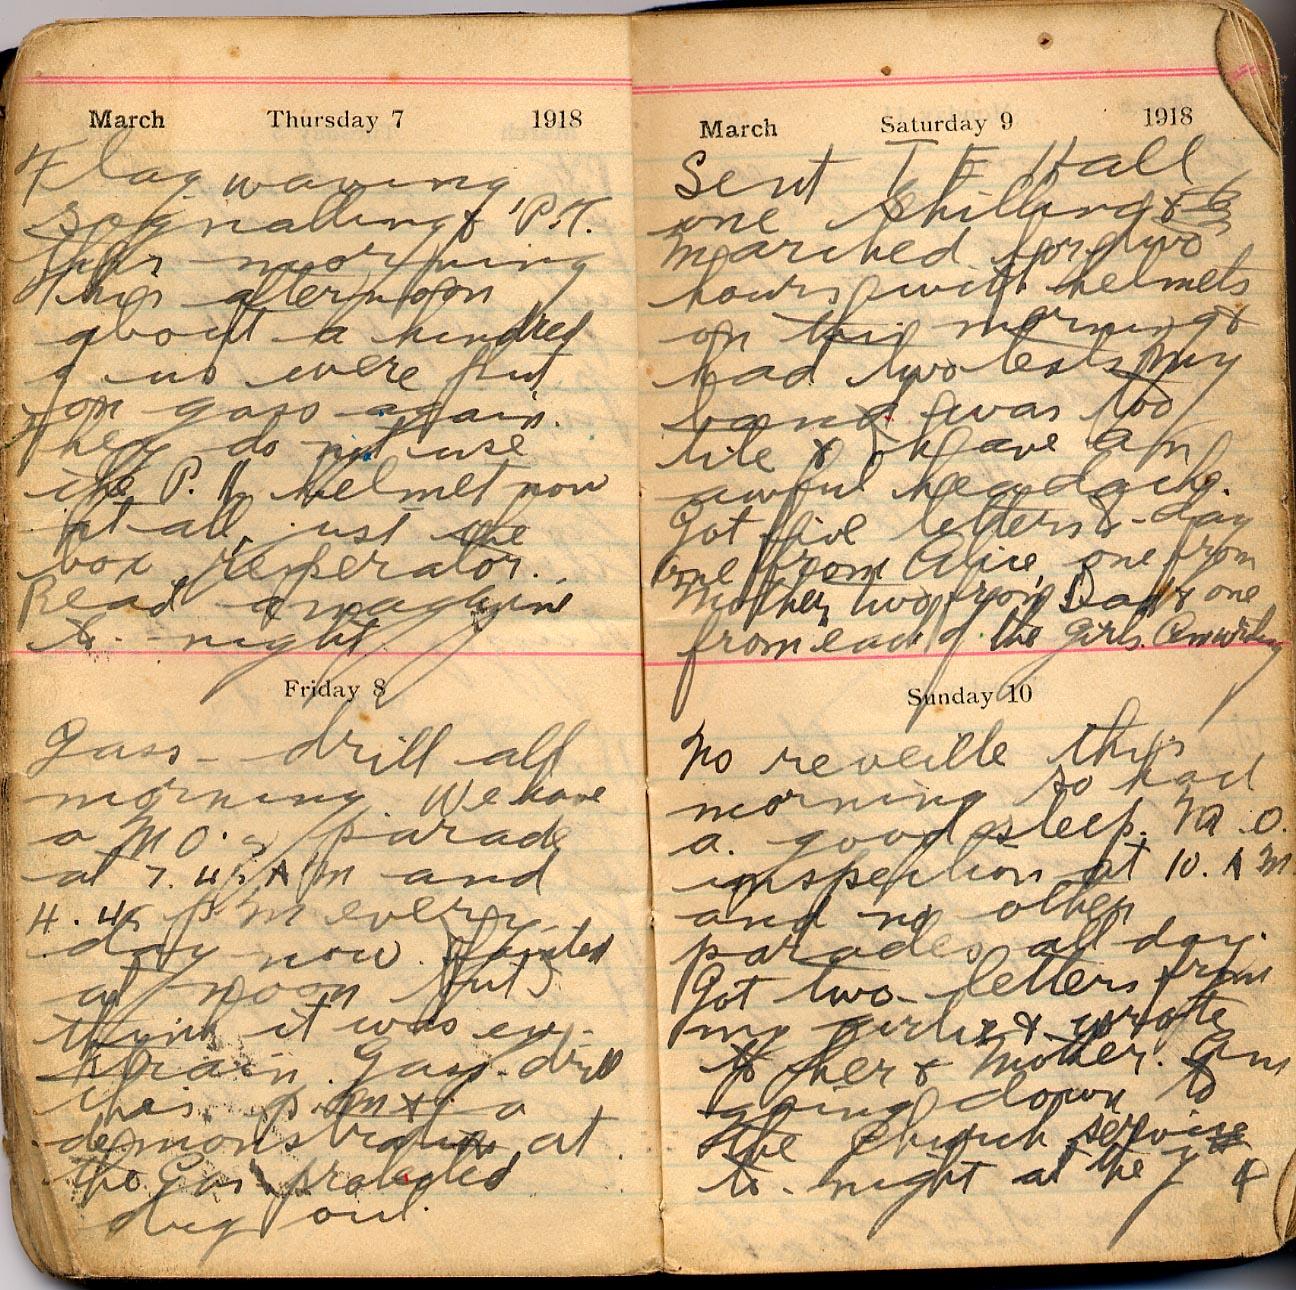 March Thursday 7 1918
Flag waving
signalling & P.T.
this morning
This afternoon
about a hundred
of us were put
on gass again.
They do not use
the P. H. helmet now
at all, just the
box resperator.
Read a magazine
to-night
Friday 8
Gass-drill all
morning. We have
a M O. parade
at 7.45 A M and
4.45 P M every
day now. Fainted
at noon but
think it was ey-
strain. Gass-drill
this p.m & a
demonstration at
the Gas protected
dug out.
March Saturday 9 1918
Sent T E Hall
one Shilling &
Marched for two
hours with helmets
on this morning &
had two tests My
band was too
tite & I have an
awful headache.
Got five letters to-day
one from Alice one from
Mother, two from Dad & one
from each of the Girls. Am writing
Sunday 10
No reveille this
morning so had
a good sleep. M.O.
inspection at 10. A M.
and no other
parades all day.
Got two letters from
my girlie & wrote
to her & Mother. Am
going down to
the Church service
to-night at the Y